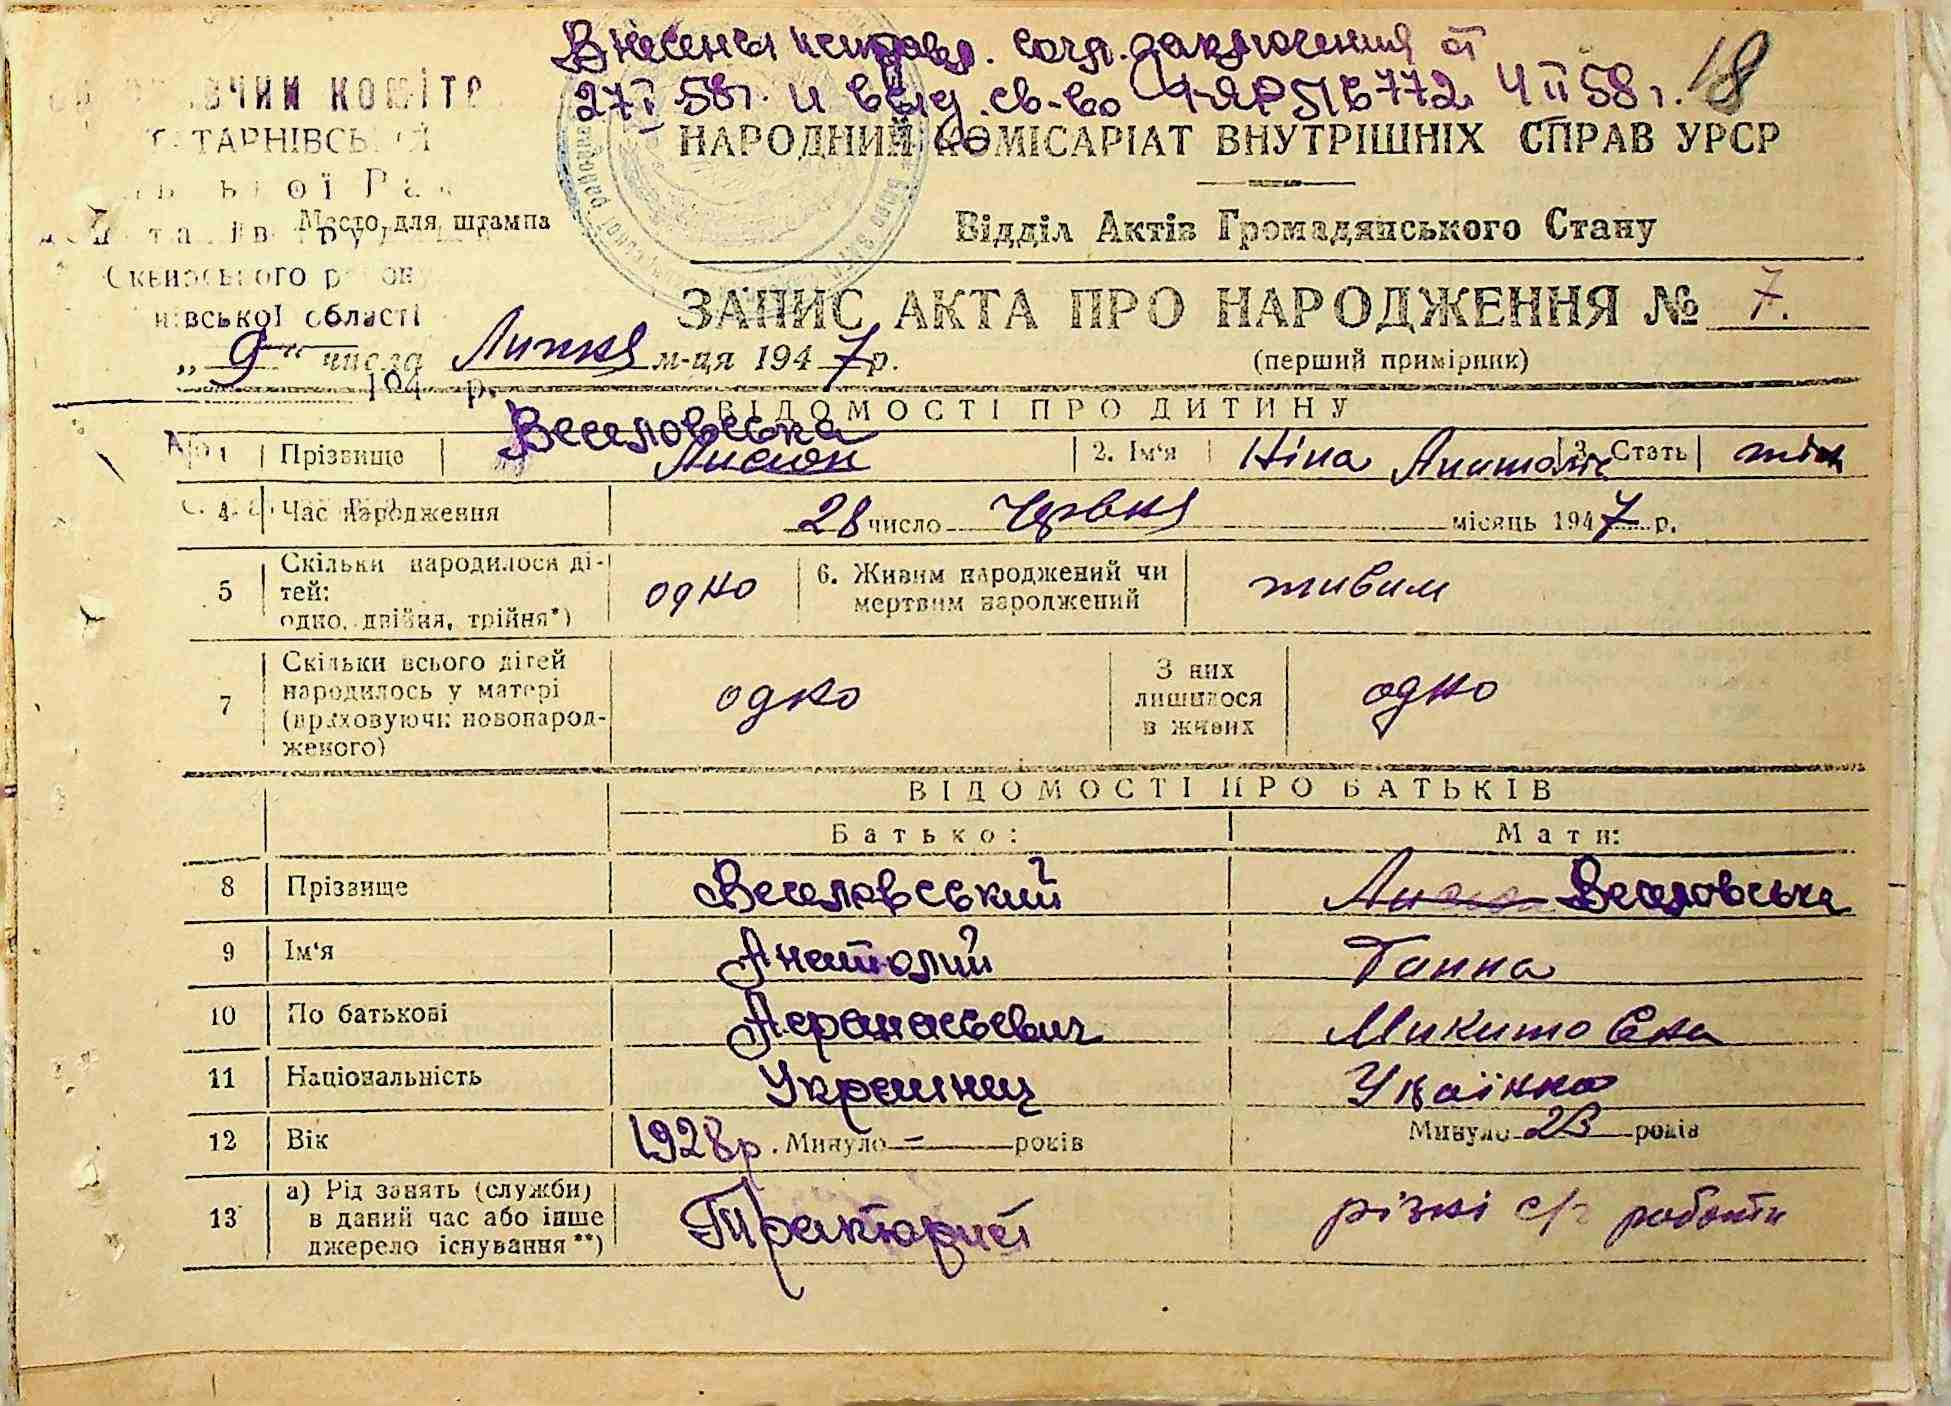 Внесены исправ. согл. заключения от
27 I 58 г. и выд. св-во I-ЯР 516772 4 II 58 г.
18
НАРОДНИЙ КОМІСАРІАТ ВНУТРІШНІХ СПРАВ УРСР
Место для штампа
Відділ Актів Громадянського Стану
ЗАПИС АКТА ПРО НАРОДЖЕННЯ № 7.
(перший примірник)
„ 9 " числа Липня м-ця 1947 р.
194 р.
ВІДОМОСТІ ПРО ДИТИНУ
Веселовська
1 Прізвище 2. Ім'я Ніна 3. Стать жін
4 Час народження 28 число Червня місяць 1947 р.
5 Скільки народилося ді-
тей:
одно, двійня, трійня*)
одно
6. Живим народжений чи
мертвим народжений
живим
7 Скільки всього дітей
народилось у матері
(враховуючи новонарод-
женого)
одно
З них
лишилося
в живих
одно
ВІДОМОСТІ ПРО БАТЬКІВ
Батько: Мати:
8 Прізвище Веселовський Веселовська
9 Ім'я Анатолий Ганна
10 По батькові Афанасьевич Микитовна
11 Національність Украинец Украінка
12 Вік 1928 р. Минуло – років Минуло 23 років
13 а) Рід занять (служби)
в даний час або інше
джерело існування**)
Тракторист
різні с/г роботи